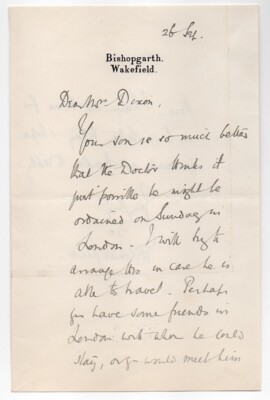 26 Sep.
Bishopgarth.
Wakefield.
Dear Mrs Dixon,
Your son is so much better
that the Doctor thinks it
just possible he might be
ordained on Sunday in
London. I will try to
arrange this in case he is
able to travel. Perhaps
you have some friends in
London with whom he could
stay, or you would meet him